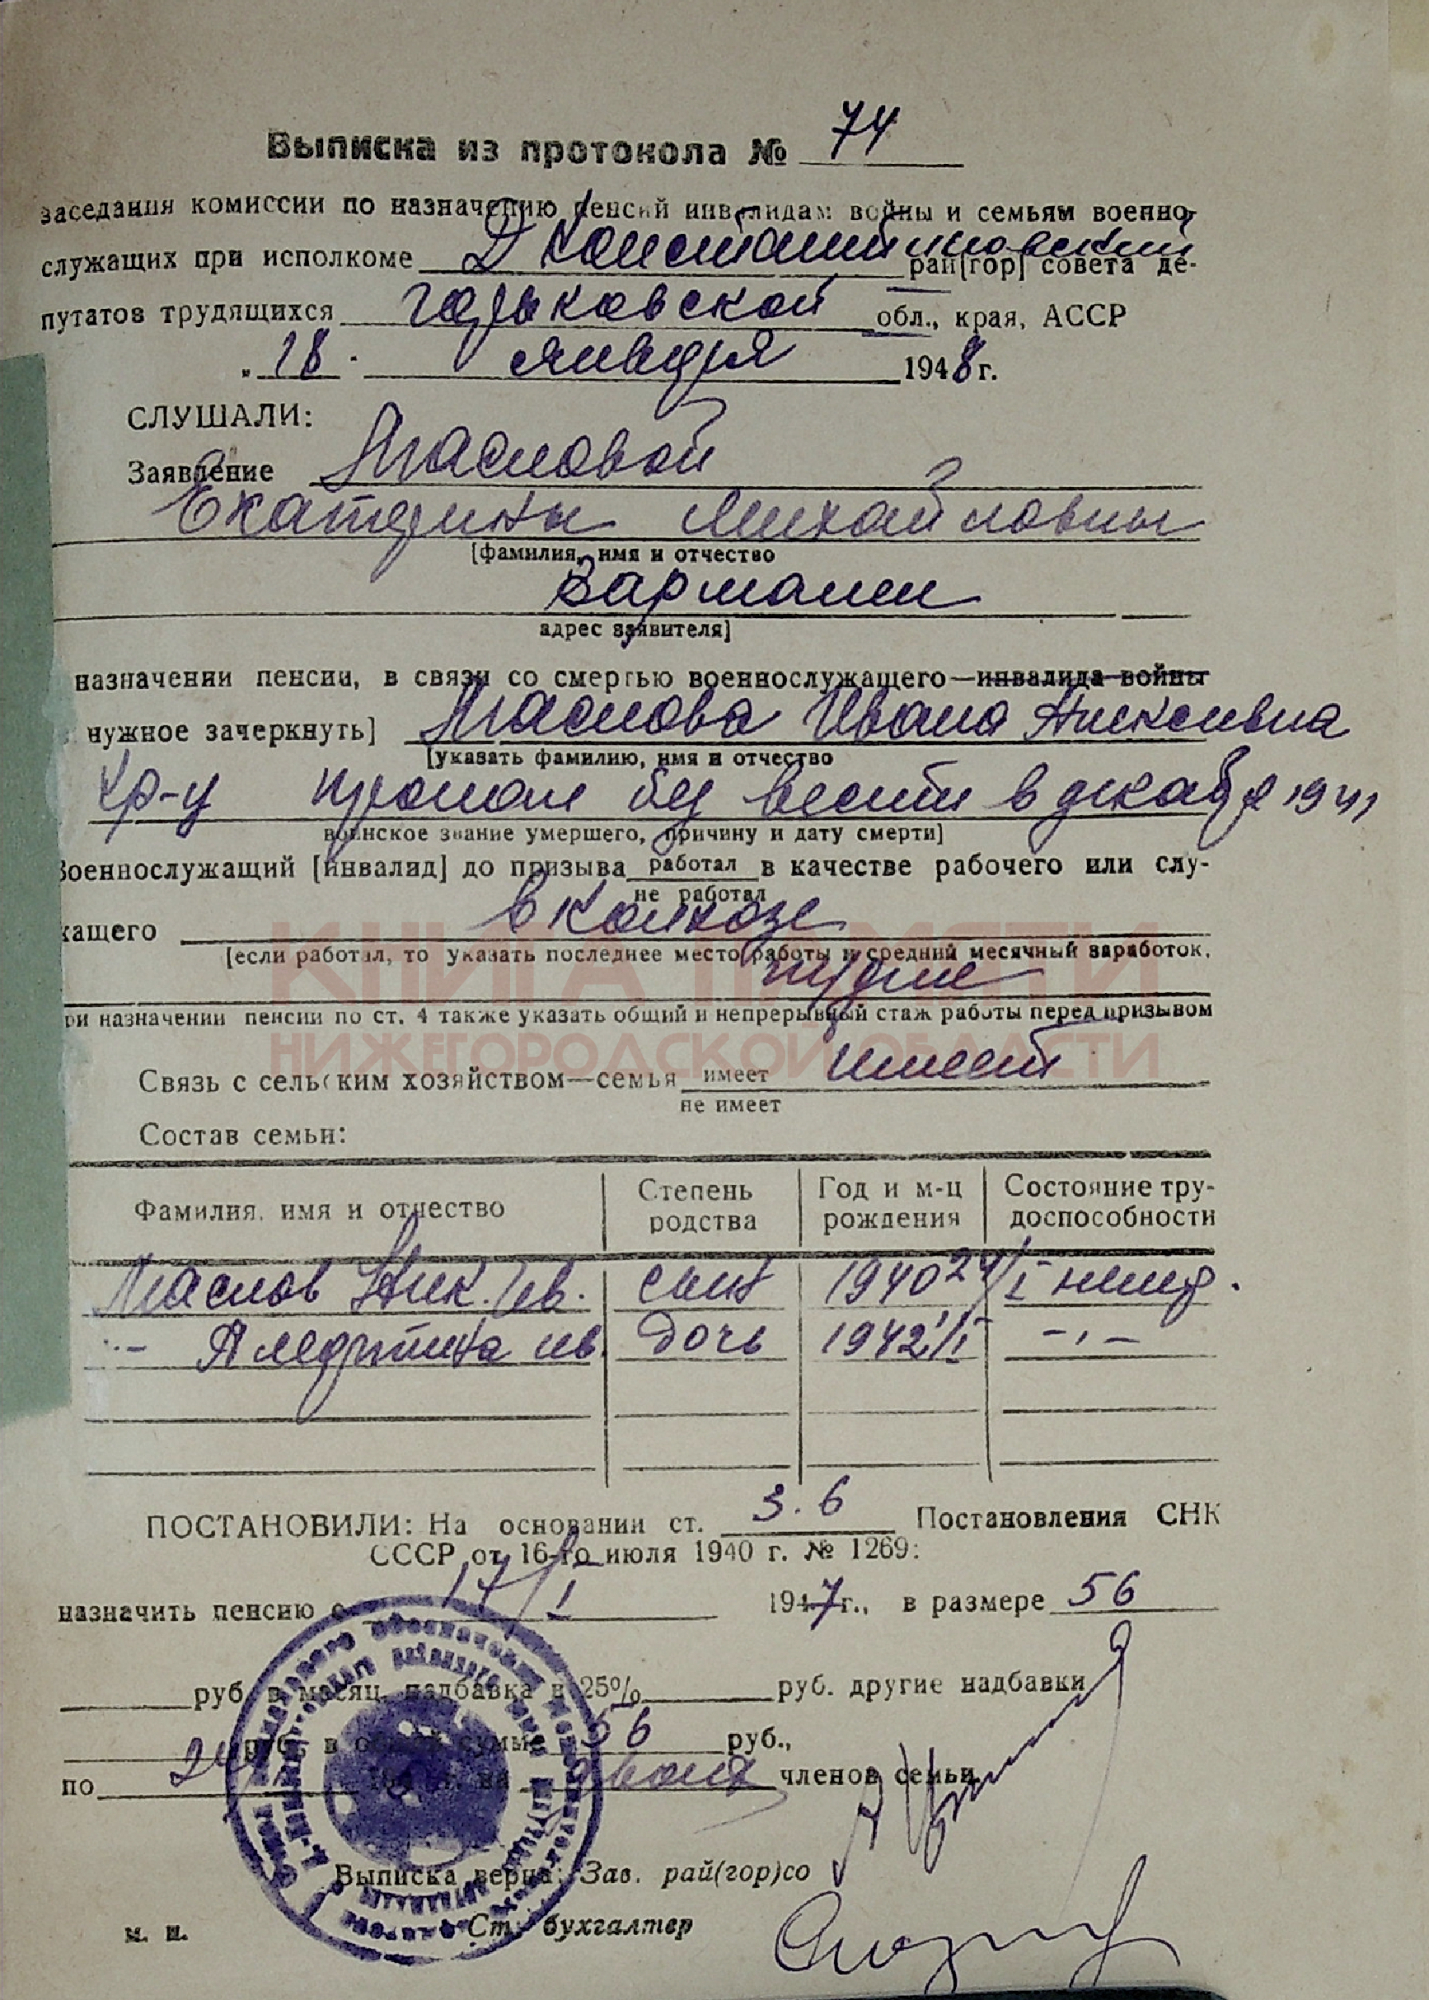 Выписка из протокола № 74
заседания комиссии по назначению пенсий инвалидам войны и семьям военно-
служащих при исполкоме Д Константиновский рай[гор] совета де-
путатов трудящихся Горьковской обл., края, АССР
„18. января 1948 г.
СЛУШАЛИ:
Заявление Масловой
Екатерины Михайловны
[фамилия, имя и отчество
Зармани
адрес заявителя]
назначении пенсии, в связи со смертью военнослужащего—инвалида войны
нужное зачеркнуть] Маслова Ивана Алексеевна
[указать фамилию, имя и отчество
кр-ц пропал без вести в декабре 1941
воинское звание умершего, причину и дату смерти]
Военнослужащий [инвалид] до призыва работал в качестве рабочего или слу-
не работал
жащего в колхозе
[если работал, то указать последнее место работы и средний месячный заработок,
КНИГА ПАМЯТИ
при назначении пенсии по ст. 4 также указать общий и непрерывный стаж работы перед призывом
НИЖЕГОРОДСКОЙ ОБЛАСТИ
Связь с сельским хозяйством—семья имеет имеет
не имеет
Состав семьи:
Фамилия, имя и отчество Степень родства Год и м-ц рождения Состояние тру-доспособности
Маслов Ник. Ив. сын 1940 24/I нетр.
-"- Алефтина ив. дочь 1942 1/I -"-
ПОСТАНОВИЛИ: На основании ст. 3.6 Постановления СНК
СССР от 16-го июля 1940 г. № 1269:
назначить пенсию с 17/I 1947 г., в размере 56
руб. в месяц, надбавка в 25% руб. другие надбавки
руб., в общей сумме 56 руб.,
по 24/ 19 г. на двоих членов семьи
Выписка верна: Зав. рай(гор)со
м. п. Ст. бухгалтер